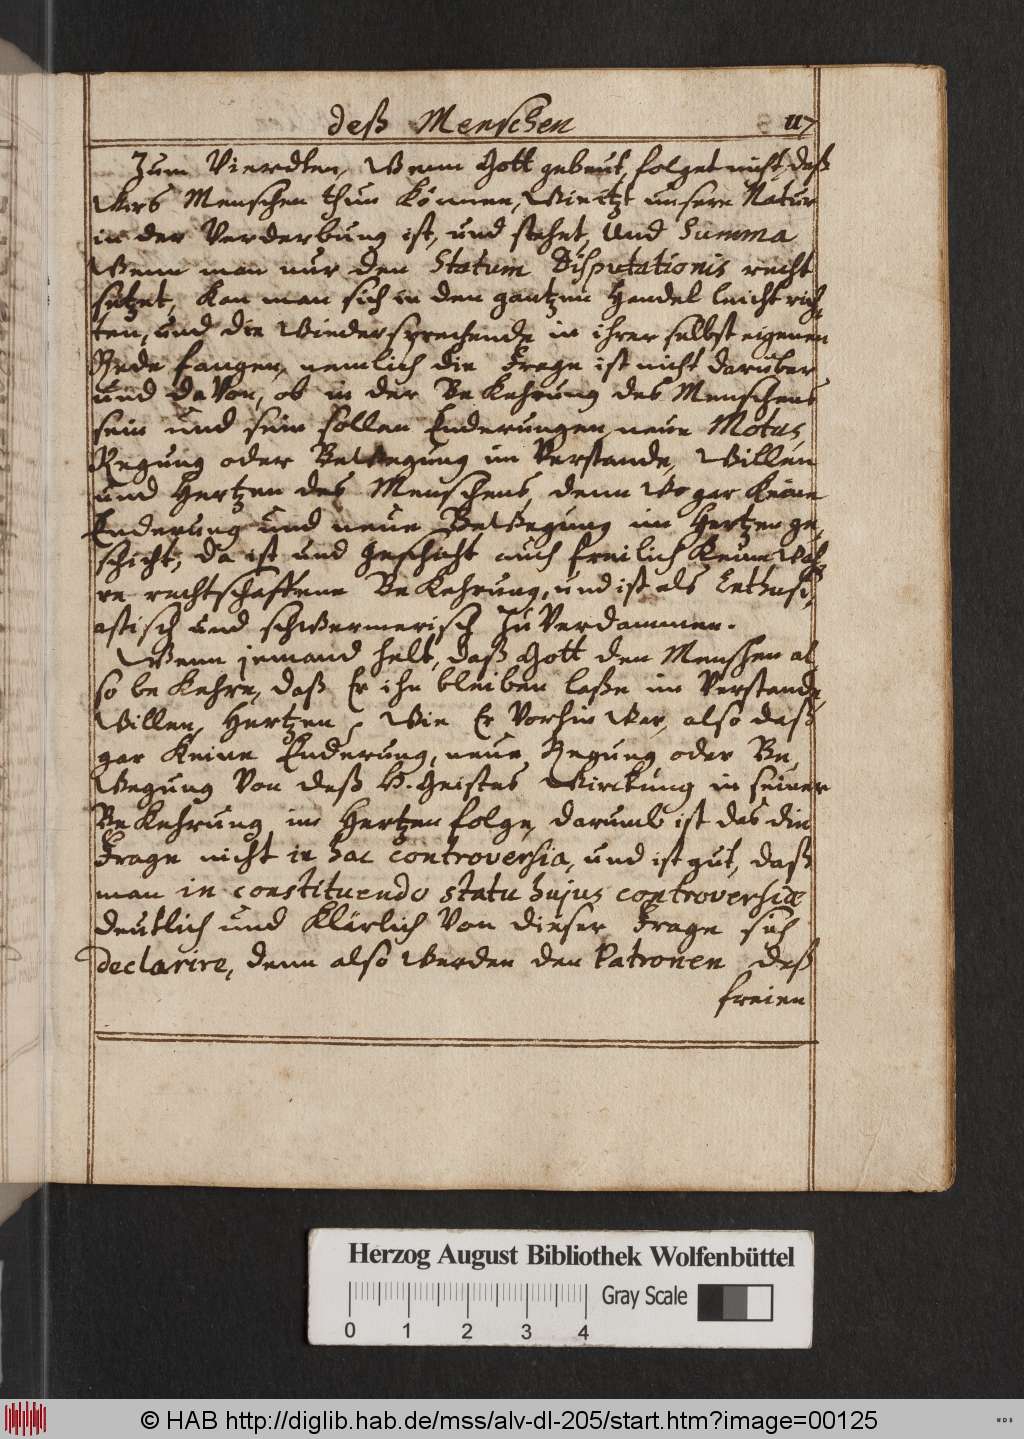 deß Menschen 117
Zum Vierdten, Wenn Gott gebeut, folget nicht, daß
Wirs Menschen thun können, Wie itzt unsere Natur
in der Verderbung ist, und stehet, Und Summa
Wenn man nur den Statum Disputationis recht
setzet, kan man sich in den gantzen Handel leicht rich,
ten, und die Wiedersprechende in ihrer selbst eigenen
Rede fangen, nemlich die Frage ist nicht darüber
und daVon, ob in der BeKehrung des Menschens
sein und sein sollen Enderungen, neue Motus,
Regung oder BeWegung im Verstande, Willen
und Hertzen des Menschens, denn Wo gar Keine
Enderung und neue BeWegung im Hertzen ge,
schicht, da ist und geschicht auch freilich Keine Wah,
re rechtschaffene BeKehrung, und ist als Enthusi,
astisch und schWermerisch Zu Verdammen.
Wenn jemand helt, daß Gott den Menschen al,
so beKehre, daß Er ihn bleiben laße im Verstande,
Willen, Hertzen, Wie Er Vorhin War, also daß
gar Keine Enderung, neue Regung oder Be,
Wegung Von deß H. Geistes Wirckung in seiner
BeKehrung im Hertzen folge, darumb ist das die
Frage nicht in hac controversia, und ist gut, daß
man in constituendo statu hujus controversiæ
deutlich und Klärlich Von dieser Frage sich
declarire, denn also Werden den Patronen deß
freien
Herzog August Bibliothek Wolfenbüttel
Gray Scale
0 1 2 3 4
© HAB http://diglib.hab.de/mss/alv-dl-205/start.htm?image=00125